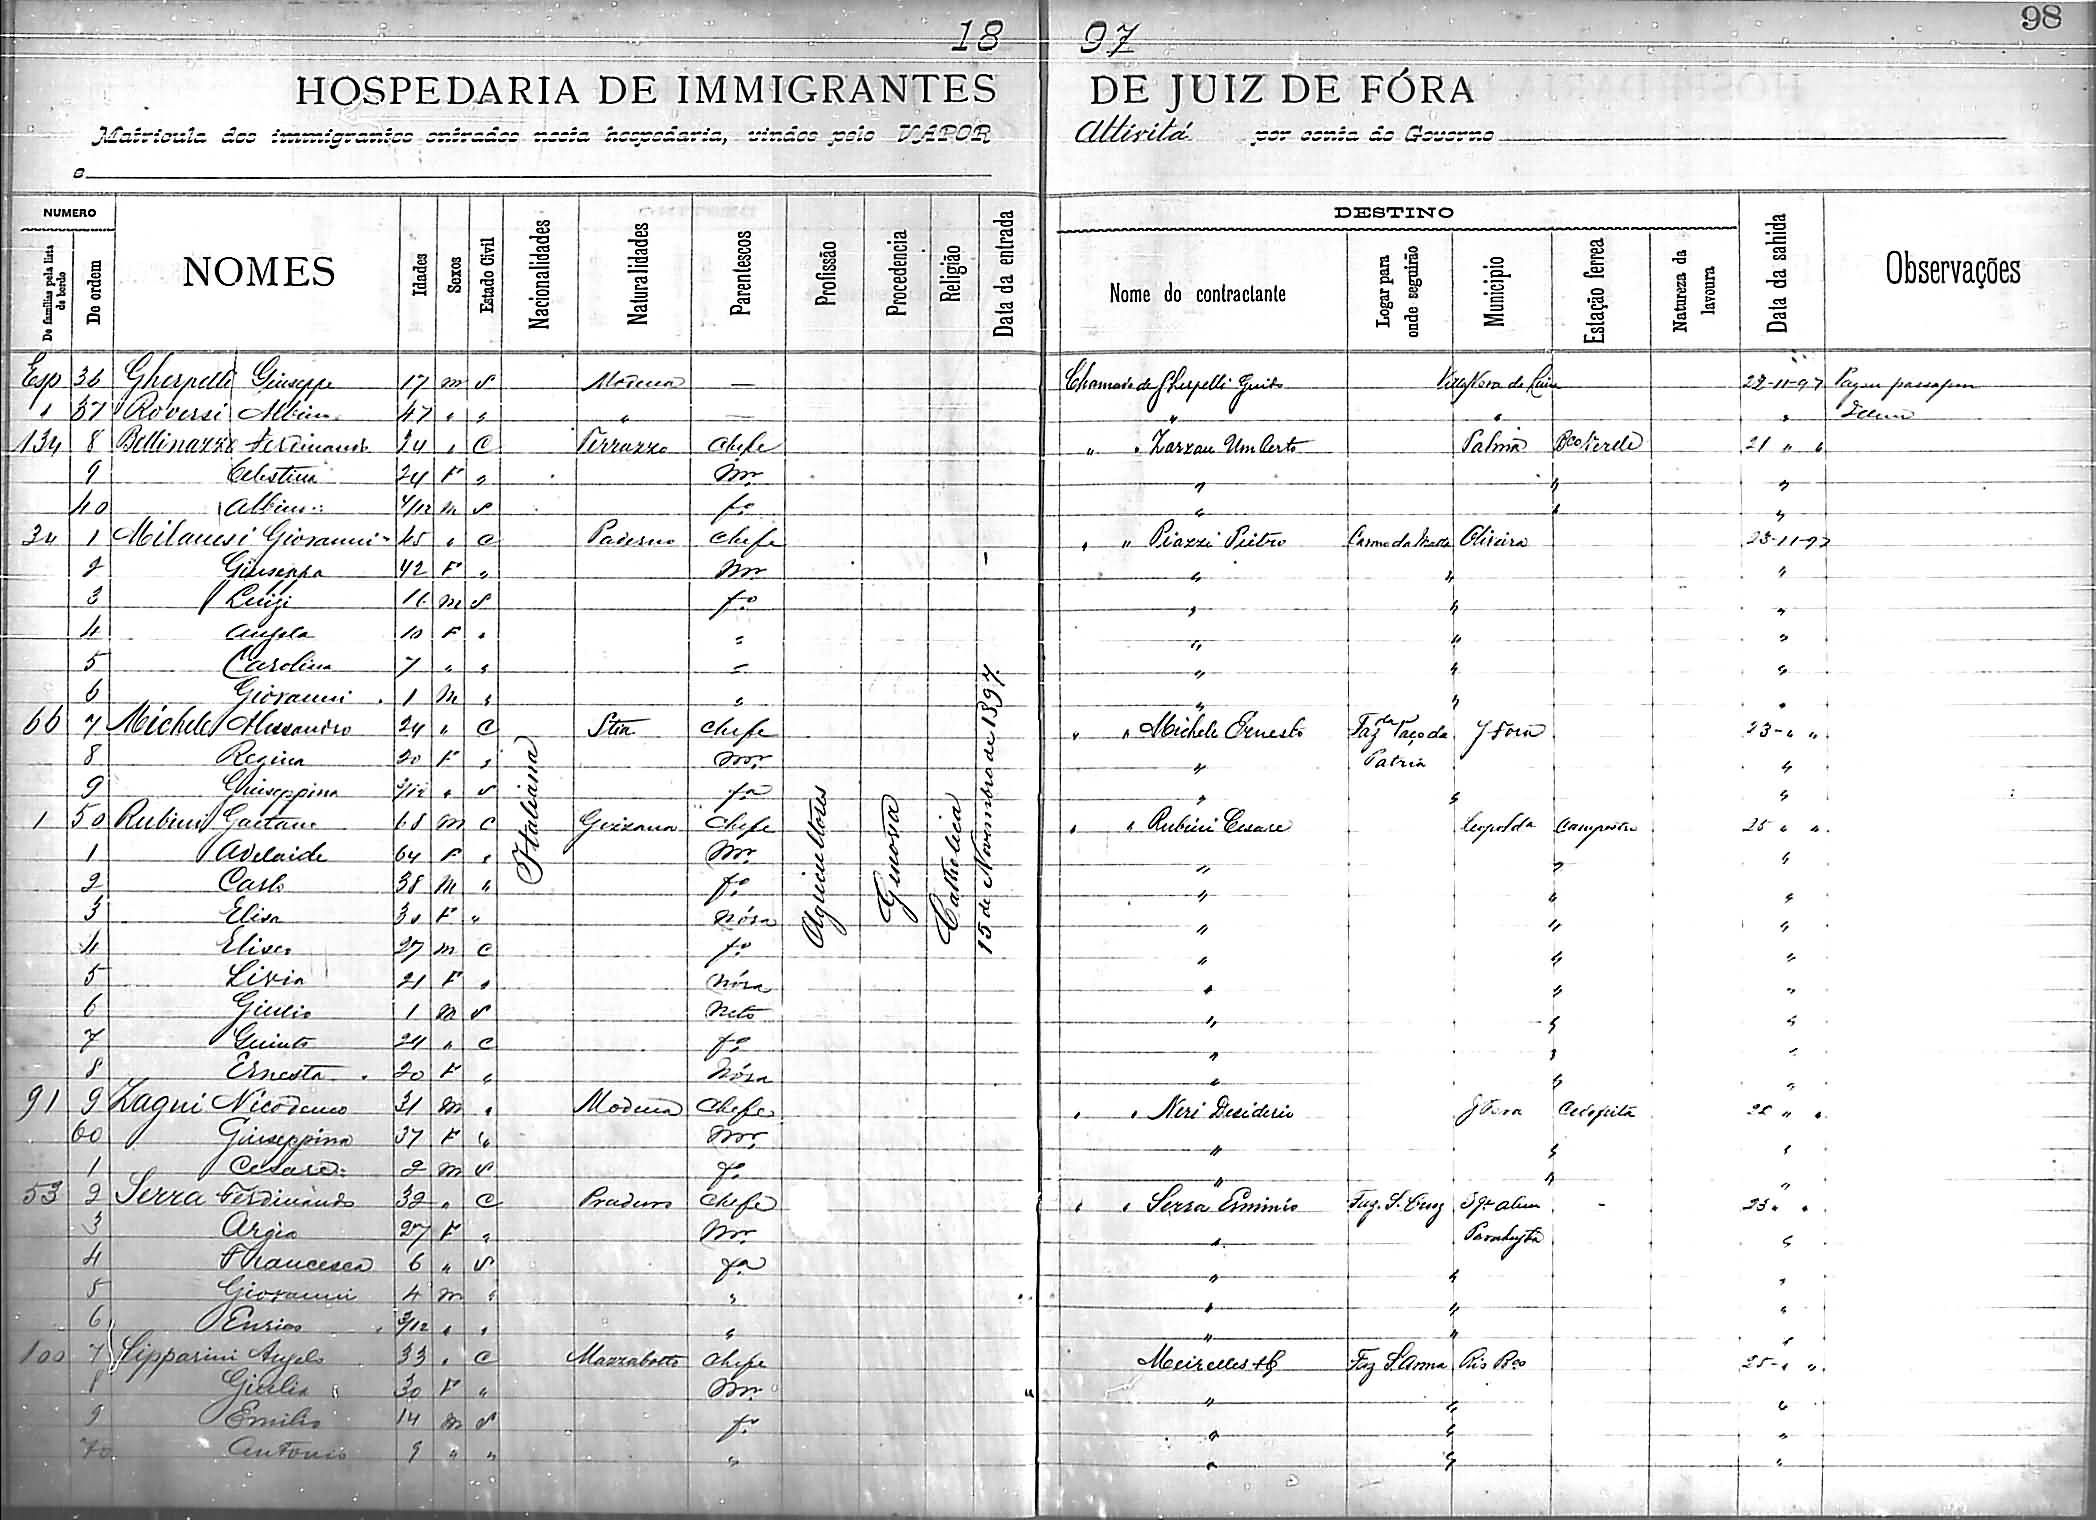 98
18 97
HOSPEDARIA DE IMMIGRANTES DE JUIZ DE FÓRA
Matricula dos immigrantes entrados nesta hospedaria, vindos pelo VAPOR Attivitá por conta do Governo
o
NUMERO DESTINO
De familias pela lista de bordo De ordem NOMES Idades Sexos Estado Civil Nacionalidades Naturalidades Parentescos Profissão Procedencia Religião Data da entrada Nome do contractante Logar para onde seguirão Municipio Estação ferrea Natureza da lavoura Data da sahida Observações
Esp 36 Gherpelli Giuseppe 17 m s Modena — Chamado de Gherpelli Guido 22-11-97 Pagou passagem
" 37 Roversi Albino 47 " " " — " " " Idem
134 8 Bellinazzi Ferdinando 24 " C Terrazzo Chefe " " Zarzau Umberto Palma Bco Verde 21 " "
9 Celestina 24 F " Mr. " " "
40 Albino 4/12 m s fo " " "
34 1 Milanesi Giovanni 45 " C Paderno Chefe " " Piazzi Pietro Carmo da Matta Oliveira 23-11-97
2 Giuseppa 42 F " Mr. " " "
3 Luigi 16 m s fo " " "
4 Angela 10 F " " " " "
5 Carolina 7 " " " " " "
6 Giovanni 1 M " " " " "
66 7 Michele Alessandro 24 " C Chefe " " Michele Ernesto Faz da Paço da J Fora 23 - " "
8 Regina 20 F " Mr. " Patria "
9 Giuseppina 3/12 " s fa " " "
1 50 Rubini Gaetano 68 m C Gizzana Chefe " " Rubini Cesare Leopolda Campestre 25 " "
1 Adelaide 64 F " Mr. " " "
2 Carlo 38 M " fo " " "
3 Elisa 30 F " Nóra " " "
4 Eliseo 27 m C fo " " "
5 Livia 21 F " Nóra " " "
6 Giulio 1 m s Neto " " "
7 Quinto 24 " C fo " " "
8 Ernesta 20 F " Nóra " " "
91 9 Zagni Nicodemo 31 m " Modena Chefe " " Neri Desiderio J Fora Cedofeita 22 " "
60 Giuseppina 37 F " Mr. " " "
1 Cesare 2 m s fo " " "
53 2 Serra Ferdinando 32 " C Praduro Chefe " " Serra Erminio Faz. S. Cruz S. J. alem 23 " "
3 Argia 27 F " Mr. " Parahyba "
4 Francesca 6 " s fa " " "
5 Giovanni 4 m " " " " "
6 Enrico 3/12 " " " " " "
100 7 Lipparini Angelo 33 " C Marzabotto Chefe Meirelles & C Faz S. Anna Rio Bco 25 - " "
8 Giulia 30 F " Mr. " " "
9 Emilio 14 m s fo " " "
70 Antonio 9 " " " " " "
Italiana
Agricultores
Genova
Catholica
15 de Novembro de 1897